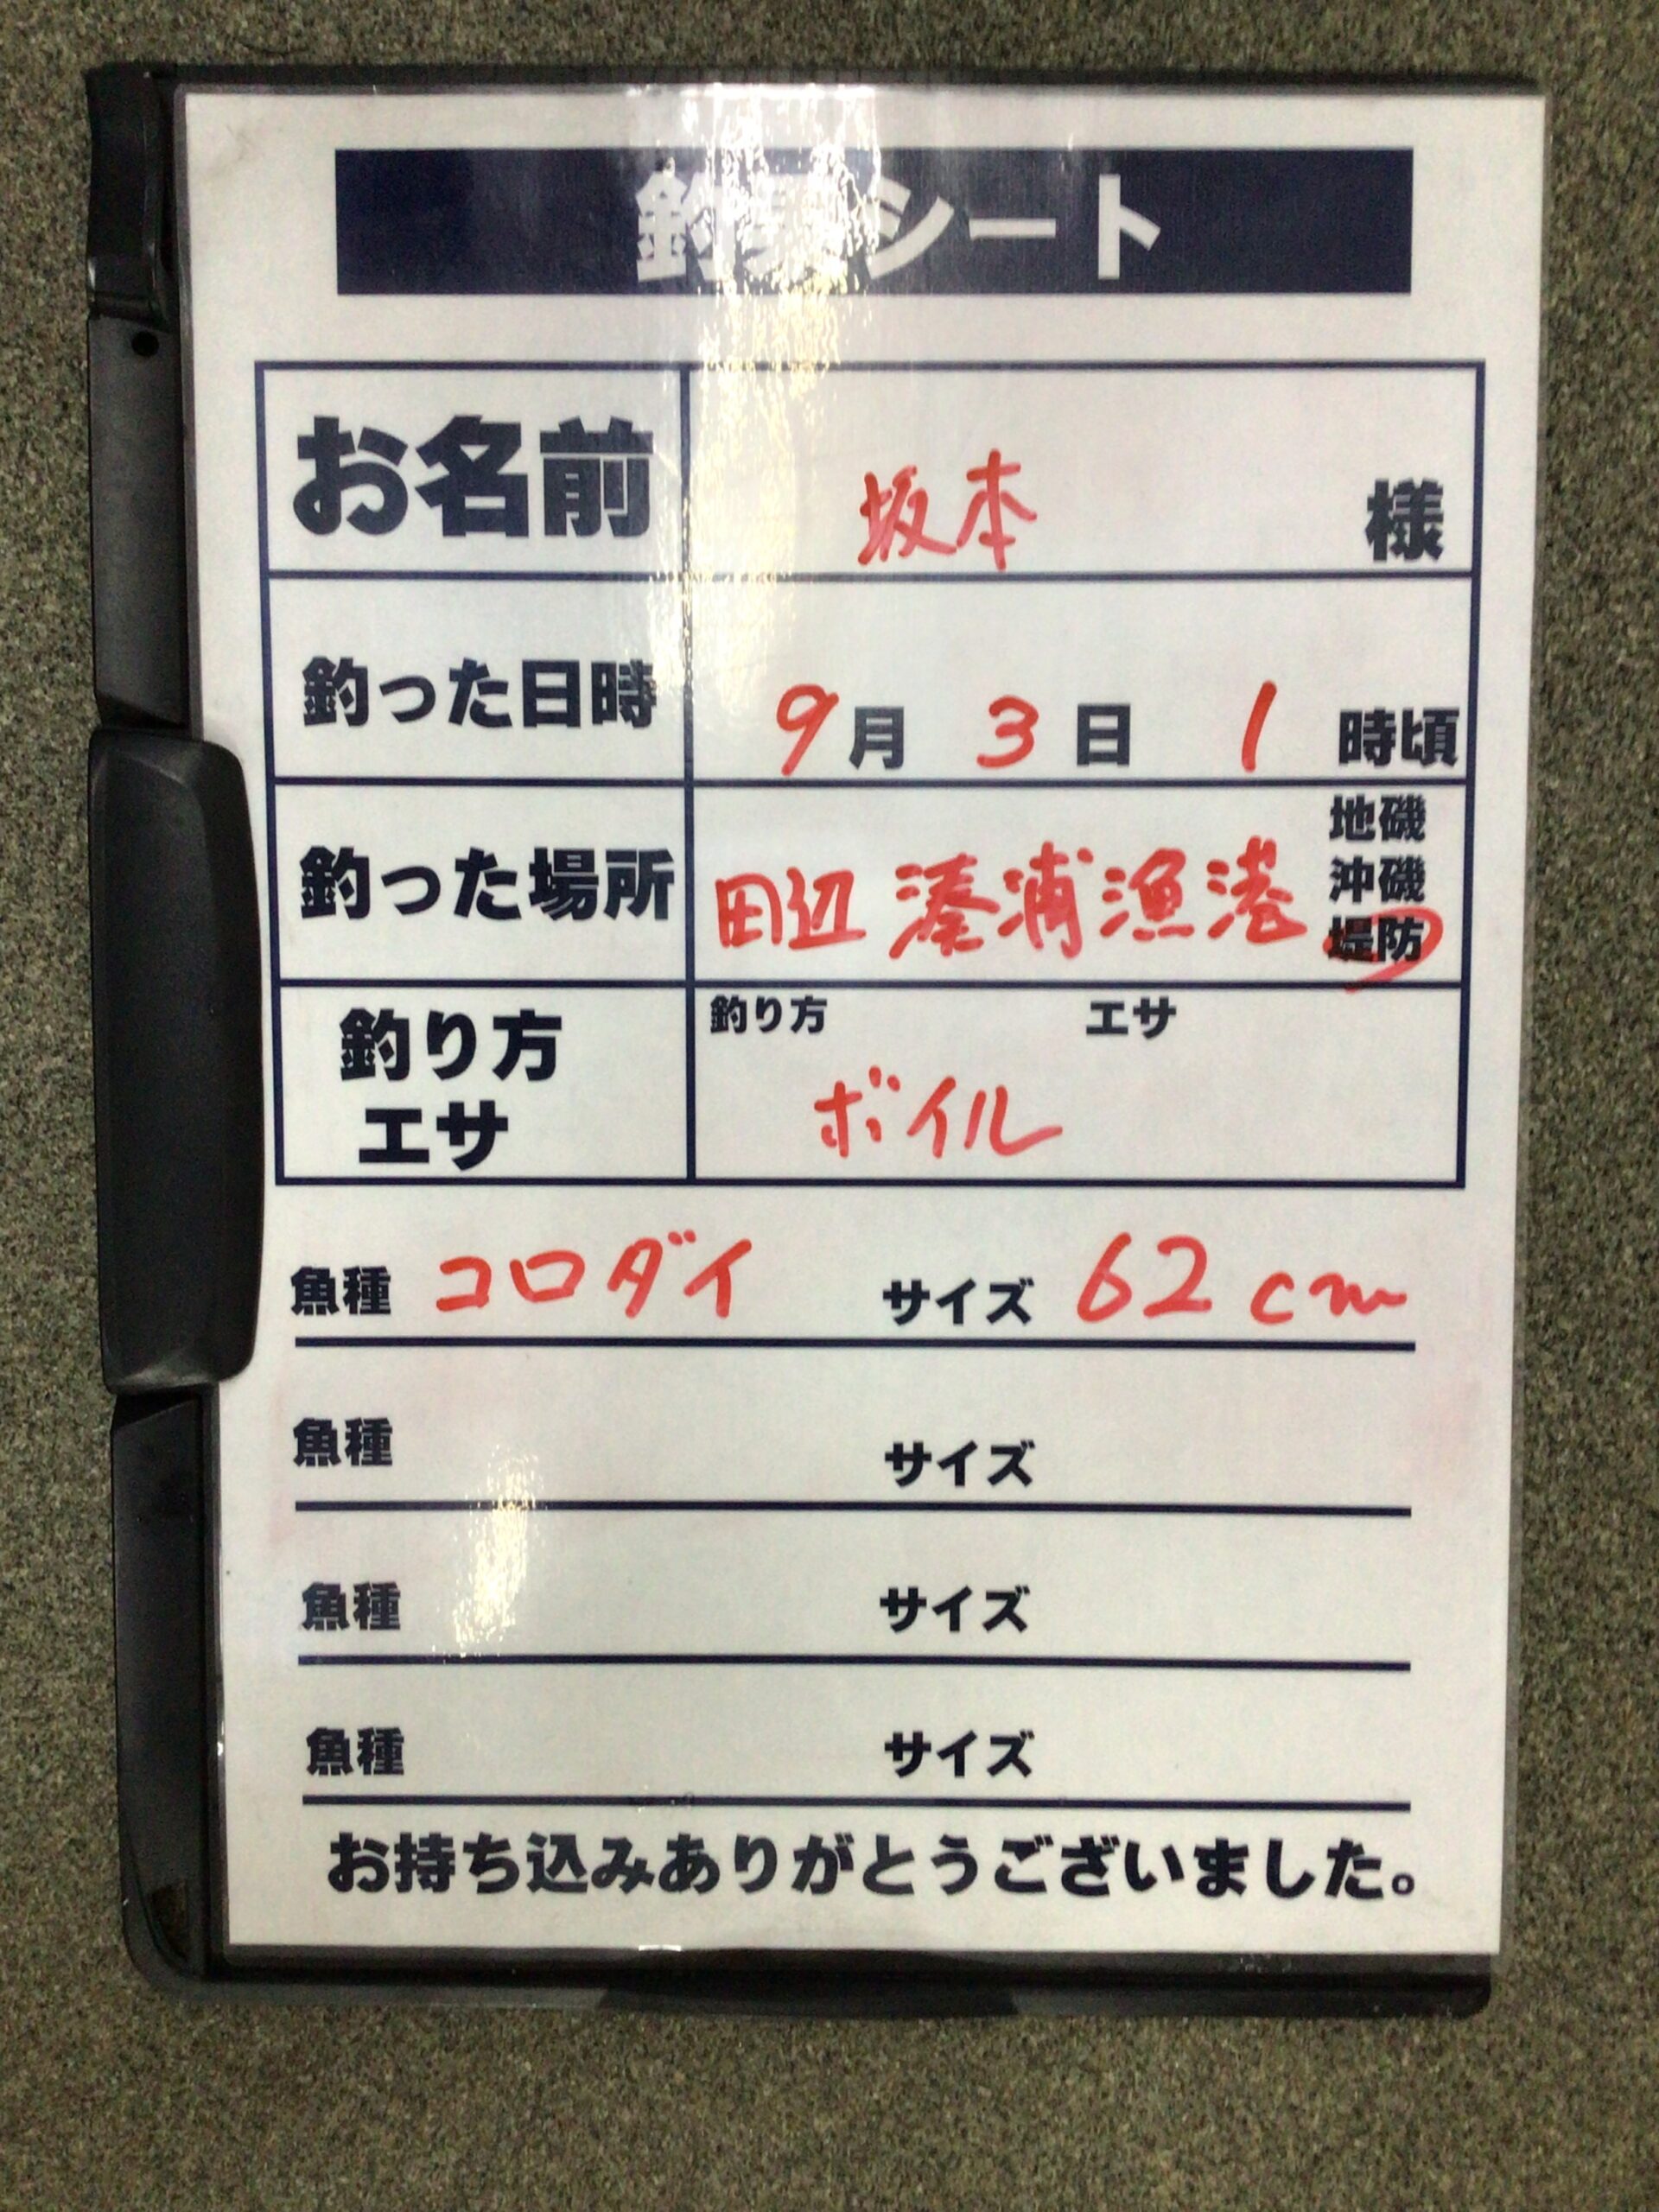 釣果シート
お名前 坂本 様
釣った日時 9月 3日 1 時頃
地磯
釣った場所 田辺 湊浦漁港 沖磯
堤防
釣り方 釣り方 エサ
エサ ボイル
魚種 コロダイ サイズ 62cm
魚種 サイズ
魚種 サイズ
魚種 サイズ
お持ち込みありがとうございました。